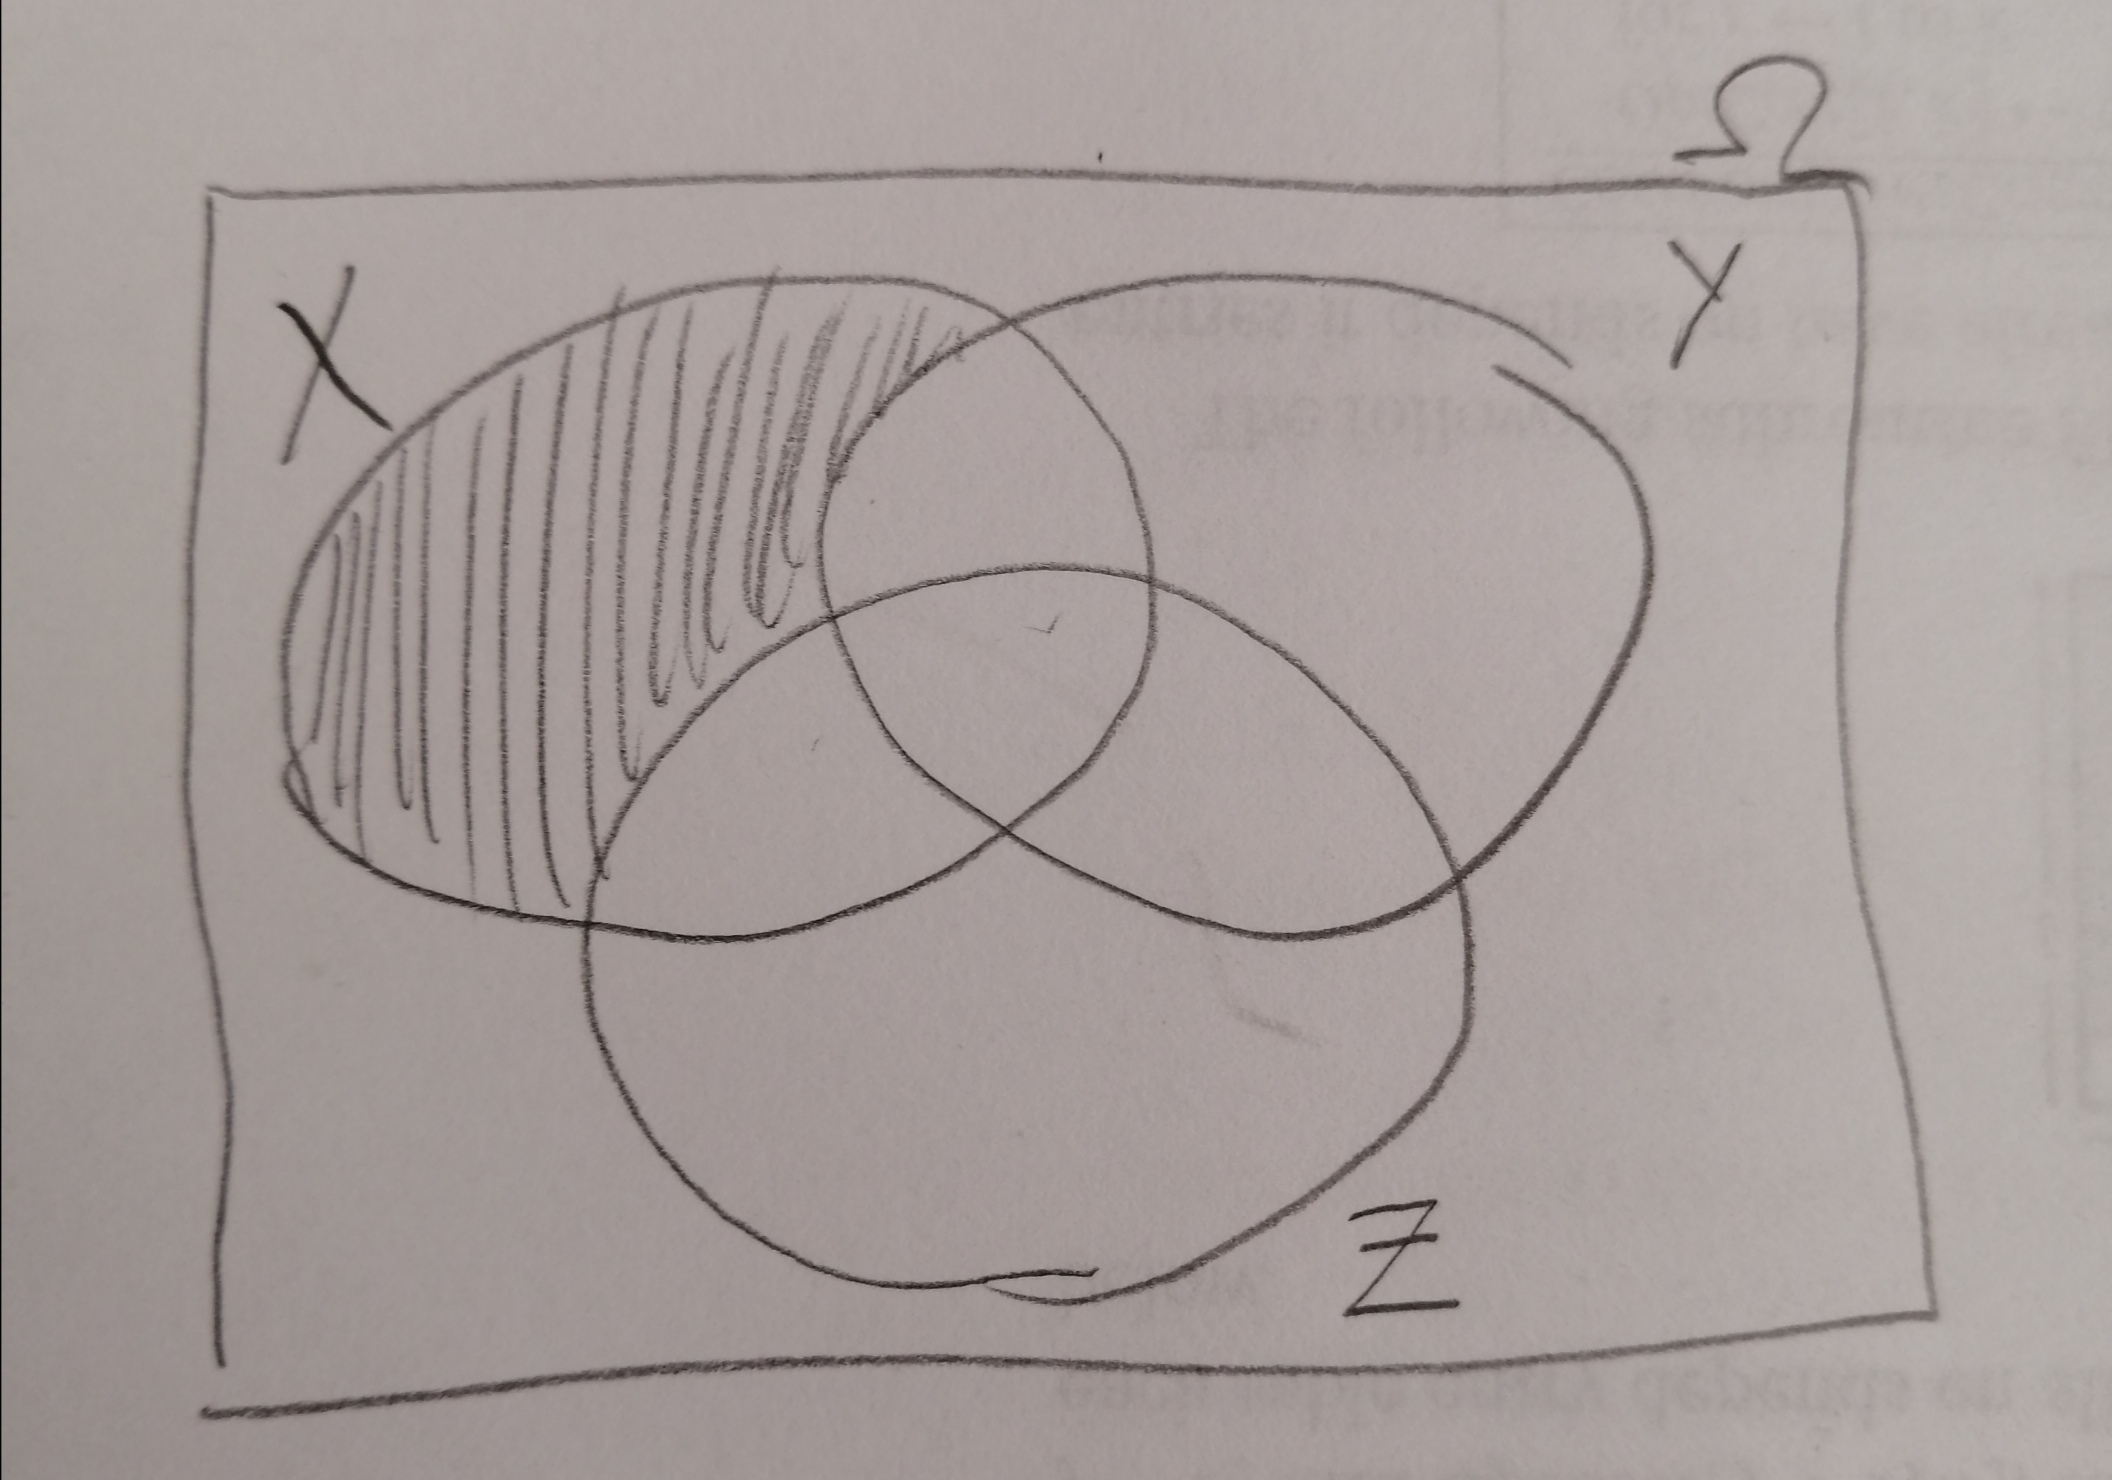 Ω
X
Y
Z